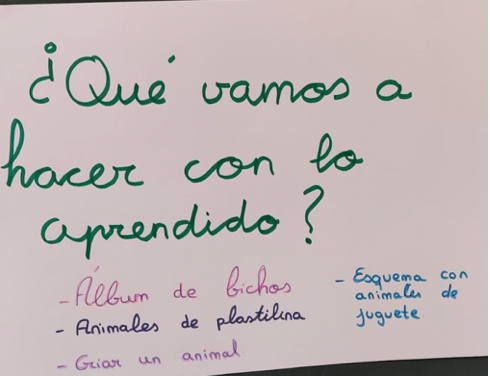 ¿Qué vamos a
hacer con lo
aprendido?
- Álbum de bichos
- Animales de plastilina
- Criar un animal
- Esquema con
animales de
juguete